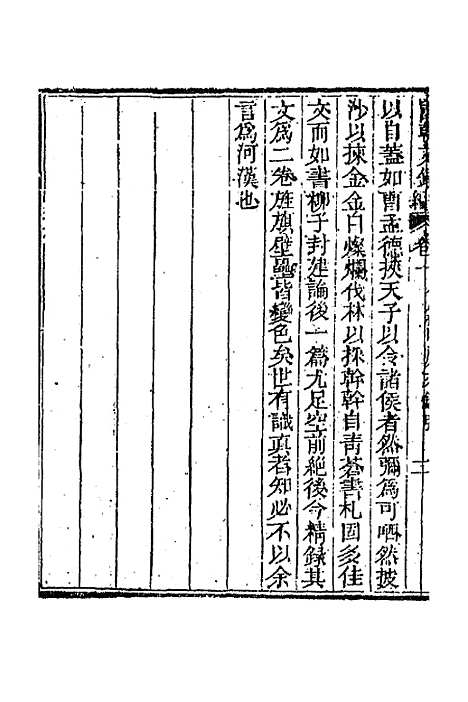 以自蓋如曹孟德挾天子以令諸侯者然彌為可哂然披
沙以揀金金白燦爛伐林以採幹幹自青蒼書札固多佳
文而如書柳子封建論後一篇尤足空前絕後今精錄其
文為二卷旌旗壁壘皆變色矣世有識真者知必不以余
言為河漢也